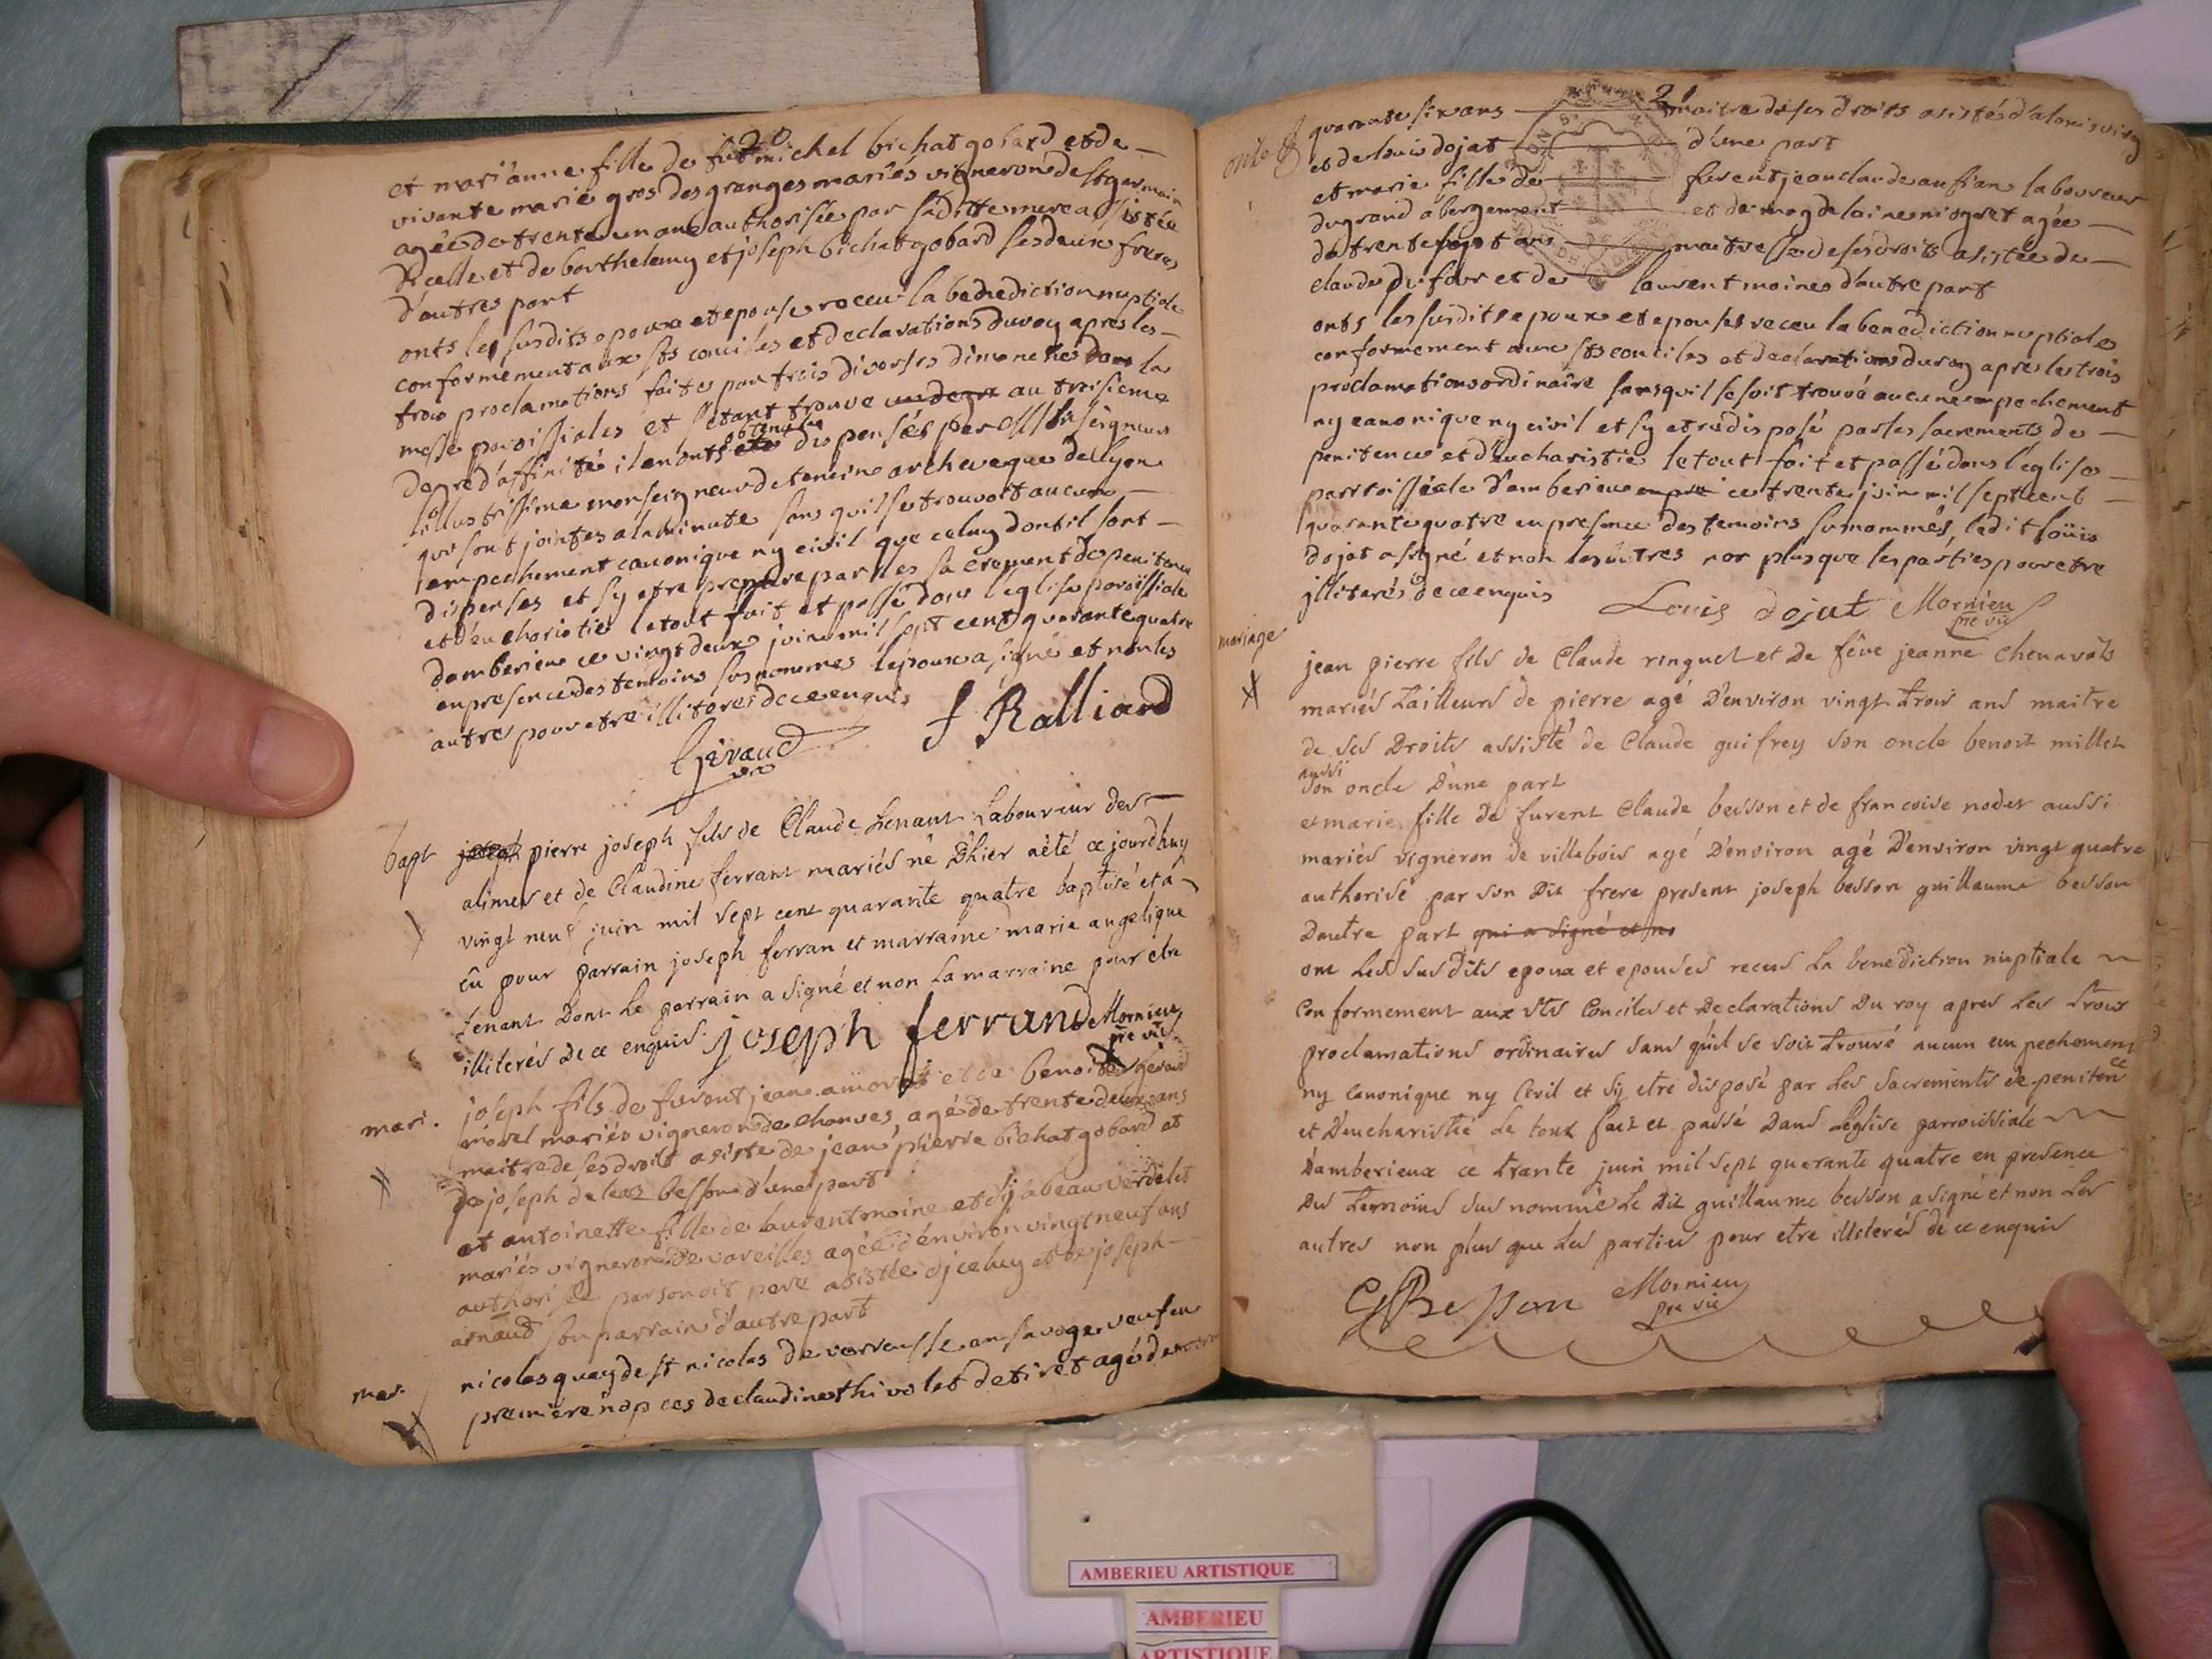 20
et marianne fille de fut michel bichat gobard et de
vivante marie gros des granges mariés vigneron de st germain
agée de trente un ans authorisée par sa ditte mere assistée
d'icelle et de barthelemy et joseph bichat gobard ses deux freres
d'autres part
onts les susdits epoux et epouses receu la benediction nuptiale
conformement aux sts conciles et declarations du roy apres les
trois proclamations faites par trois diverses dimanches dans la
messe paroissiales et s'etant trouve un degre au troisieme
degré d'affinité il en onts été obtenu la dispenses par
l'illustrissime monseigneur de tencin archeveque de lyon
qui sont jointes a la minute sans quil se trouvoit aucun
empechement canonique ny civil que celuy dont il sont
dispenses et sy etre prepare par les sacrement de penitence
et d'eucharistie le tout fait et passé dans l'eglise paroissiale
d'amberieu ce vingt deux juin mil sept cent quarante quatre
en presence des temoins susnommes lepoux a signé et non les
autres pour etre illiteres de ce enquis
Geraud
vre
f Ralliard
bapt
joseph pierre joseph fils de Claude Lenant Laboureur des
alimes et de Claudine ferrant mariés né D'hier a été ce jourdhuy
vingt neuf juin mil sept cent quarante quatre baptisé et a
eû pour parrain joseph ferran et marraine marie angelique
Lenant Dont Le parrain a signé et non La marraine pour etre
illiterés De ce enquis
joseph ferrand Mornieu
pre vic
mari.
joseph fils de furent jean amoret et de benoite geraud
morel mariés vigneron de chanves, agé de trente deux ans
maitre de ses droits asiste de jean pierre bichat gobard et
de joseph de leaz besson d'une part
et antoinette fille de laurent moine et dysabeau verdelet
mariés vigneron de vareilles agée d'environ vingt neuf ans
authorisée par son dit pere asistée djceluy et de joseph
arnaud son parrain d'autre part
mar.
nicolas quay de st nicolas de verrousse en savoge veuf en
premiere nopces de claudine thivolet de tiret agé de
21
quarante six ans maitre de ses droits asisté d'alouis
et de louis dojat d'une part
et marie fille de furent jean claude aufran laboureur
du grand abergement et de magdelaine niogret agée
de trente sept ans maitresse de ses droits asistée de
claude dufour et de laurent moine d'autre part
onts les susdits epoux et epouses receu la benediction nuptiales
conformement aux sts conciles et declarations du roy apres les trois
proclamations ordinaire sans quil se soit trouvé aucune empechement
ny canonique ny civil et sy etre disposé par les sacrements de
penitence et d'eucharistie le tout fait et passé dans l'eglise
parroissiale d'amberieu ce trente juin mil sept cent
quarante quatre en presence des temoins surnommés, ledit loüis
dojat a signé et non les autres non plus que les parties pour etre
illiterés de ce enquis
Louis dojat Mornieu
pre vic
mariage
jean pierre fils de Claude ringuet et De fëue jeanne Chenavats
mariés tailleurs de pierre agé D'environ vingt trois ans maitre
de ses Droits assisté de Claude guifrey son oncle benoit millet
aussi
son oncle D'une part
et marie fille de furent Claude besson et de francoise nodet aussi
mariés vigneron de villebois agé D'environ agé D'environ vingt quatre
authorisé par son Dit frere present joseph besson guillaume besson
D'autre part qui a signé et no
ont Les susdits epoux et epouses receus La benediction nuptiale
Conformement aux sts Conciles et Declarations Du roy apres Les trois
proclamations ordinaires sans quil se soit trouvé aucun empechement
ny Canonique ny Civil et sy etre disposé par Les sacrements de penitence
et D'eucharistie Le tout fait et passé Dans L'eglise parroissiale
D'amberieux ce trante juin mil sept quarante quatre en presence
Des temoins sus nommé Le Dit guillaume besson a signé et non Les
autres non plus que Les parties pour etre illiterés de ce enquis
G Besson Mornieu
pre vic
AMBERIEU ARTISTIQUE
AMBERIEU
ARTISTIQUE